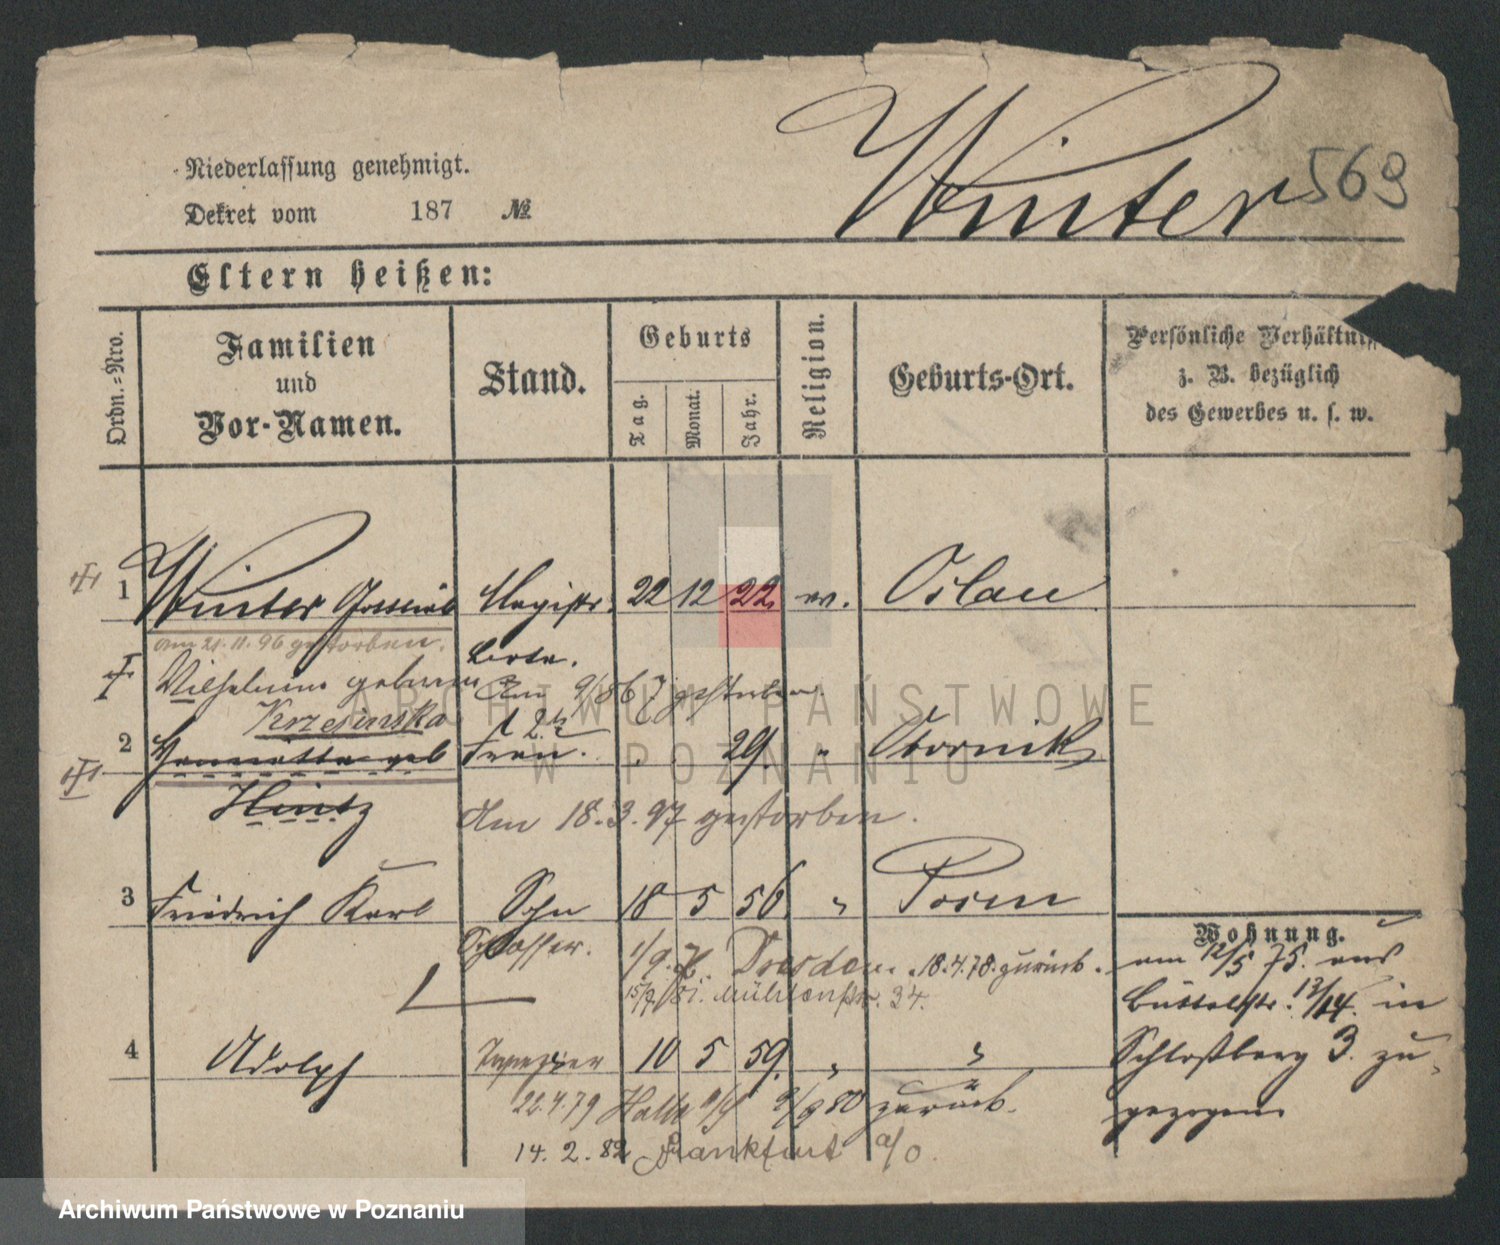 Winter 569
Niederlassung genehmigt.
Dekret vom 187 №
Eltern heißen:
Ordn.-Nro.
Familien
und
Vor-Namen.
Stand.
Geburts
Tag.
Monat.
Jahr.
Religion.
Geburts-Ort.
Persönliche
z. B. bezüglich
des Gewerbes u. s. w.
1 Winter Gottlieb Magistr. 22 12 22 ev. Oslau
am 21.11.96 gestorben. bote.
Wilhelmine geborene Am gestorben.
Krzesinska
2 Henriette geb Frau. 29. " Obornik
Hintz Am 18.3.97 gestorben.
3 Friedrich Karl Sohn 18 5 56 " Posen
Wohnung.
Schlosser. 1/9. Dresden. 18.4.78. zurück.
am 12/5 75. aus
Mühlenstr. 34.
Büttelstr. 13/14. in
4 Adolph Tapezier 10 5 59. " "
Schloßberg 3. zu-
22.4.79 Halle a/S 80 zurück.
gezogen
14. 2. 82 Frankfurt a/O.
ARCHIWUM PAŃSTWOWE
W POZNANIU
Archiwum Państwowe w Poznaniu